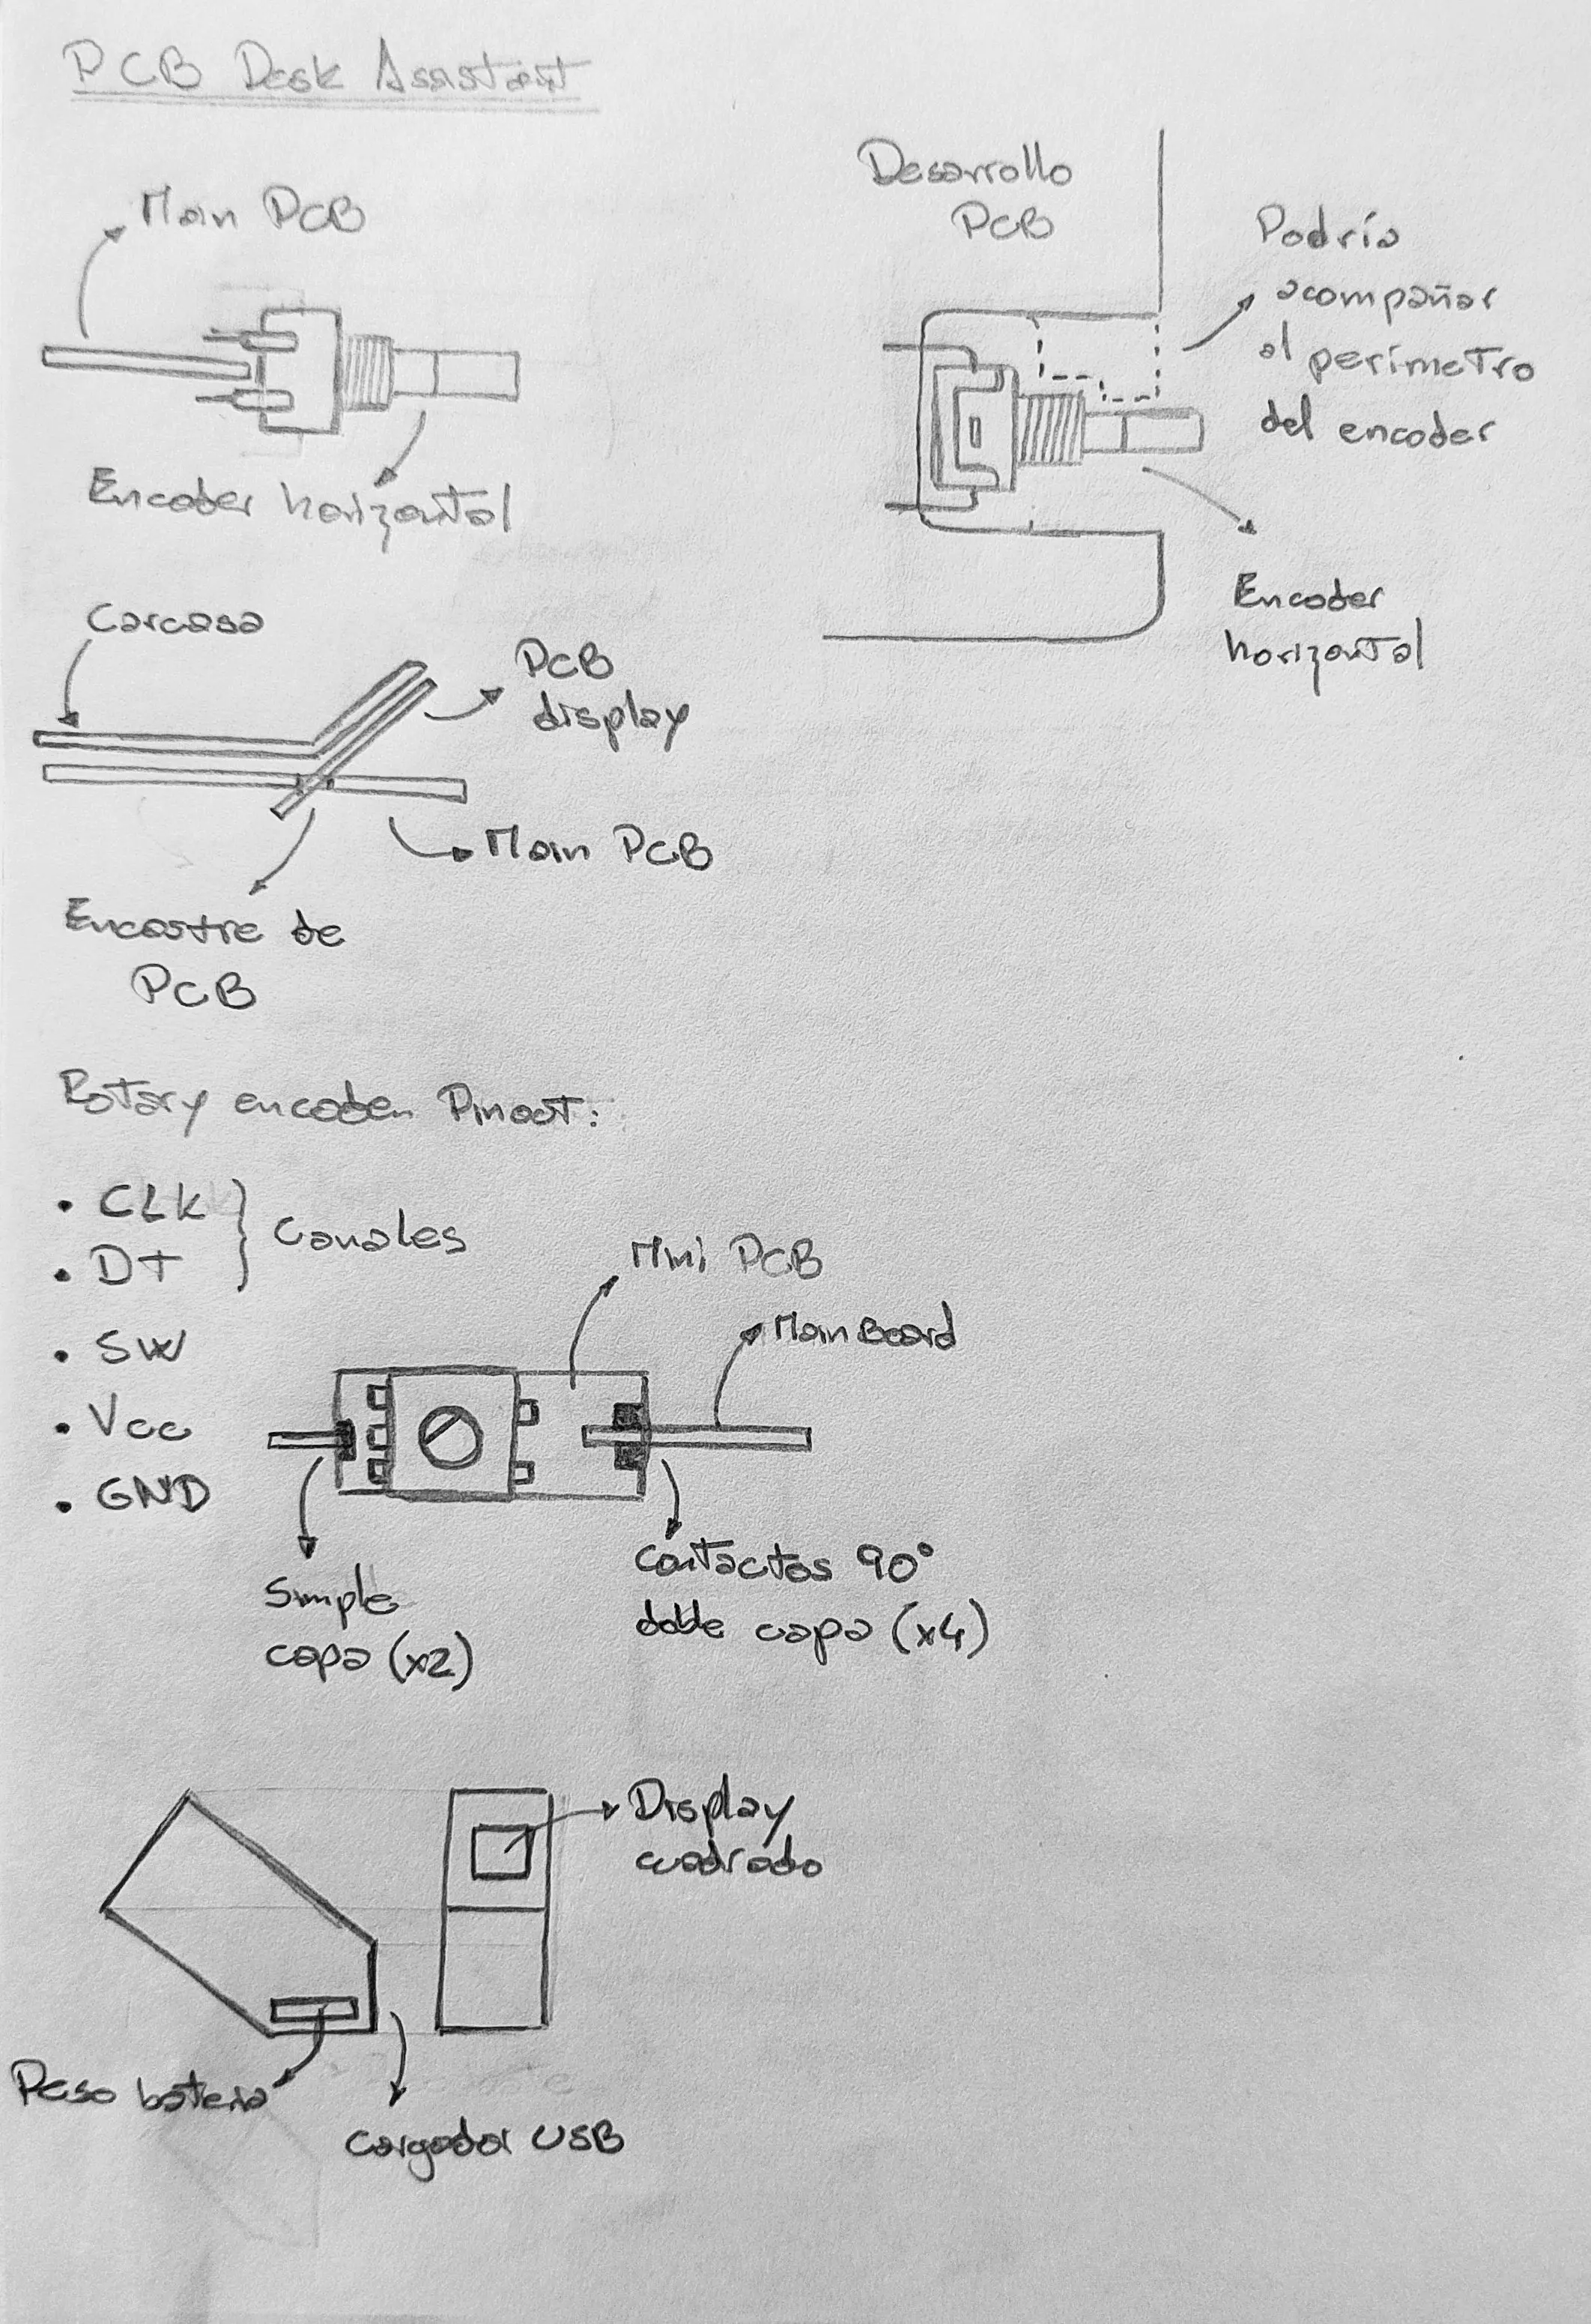 PCB Desk Assistant
Main PCB
Encoder horizontal
Desarrollo
PCB
Podría
acompañar
al perímetro
del encoder
Encoder
horizontal
Carcasa
PCB
display
Main PCB
Encastre de
PCB
Rotary encoder Pinout:
• CLK
• DT
Canales
• SW
• Vcc
• GND
Mini PCB
Main Board
Simple
capa (x2)
Contactos 90°
doble capa (x4)
Display
cuadrado
Peso bateria
Cargador USB